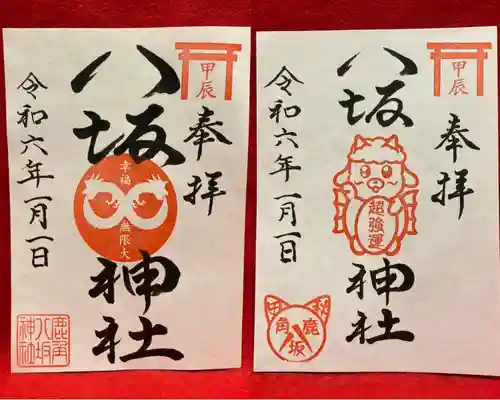 甲辰
奉拝
八坂神社
幸福
無限大
令和六年一月一日
鹿角
八坂
神社
甲辰
奉拝
八坂神社
超強運
令和六年一月一日
鹿角
八坂